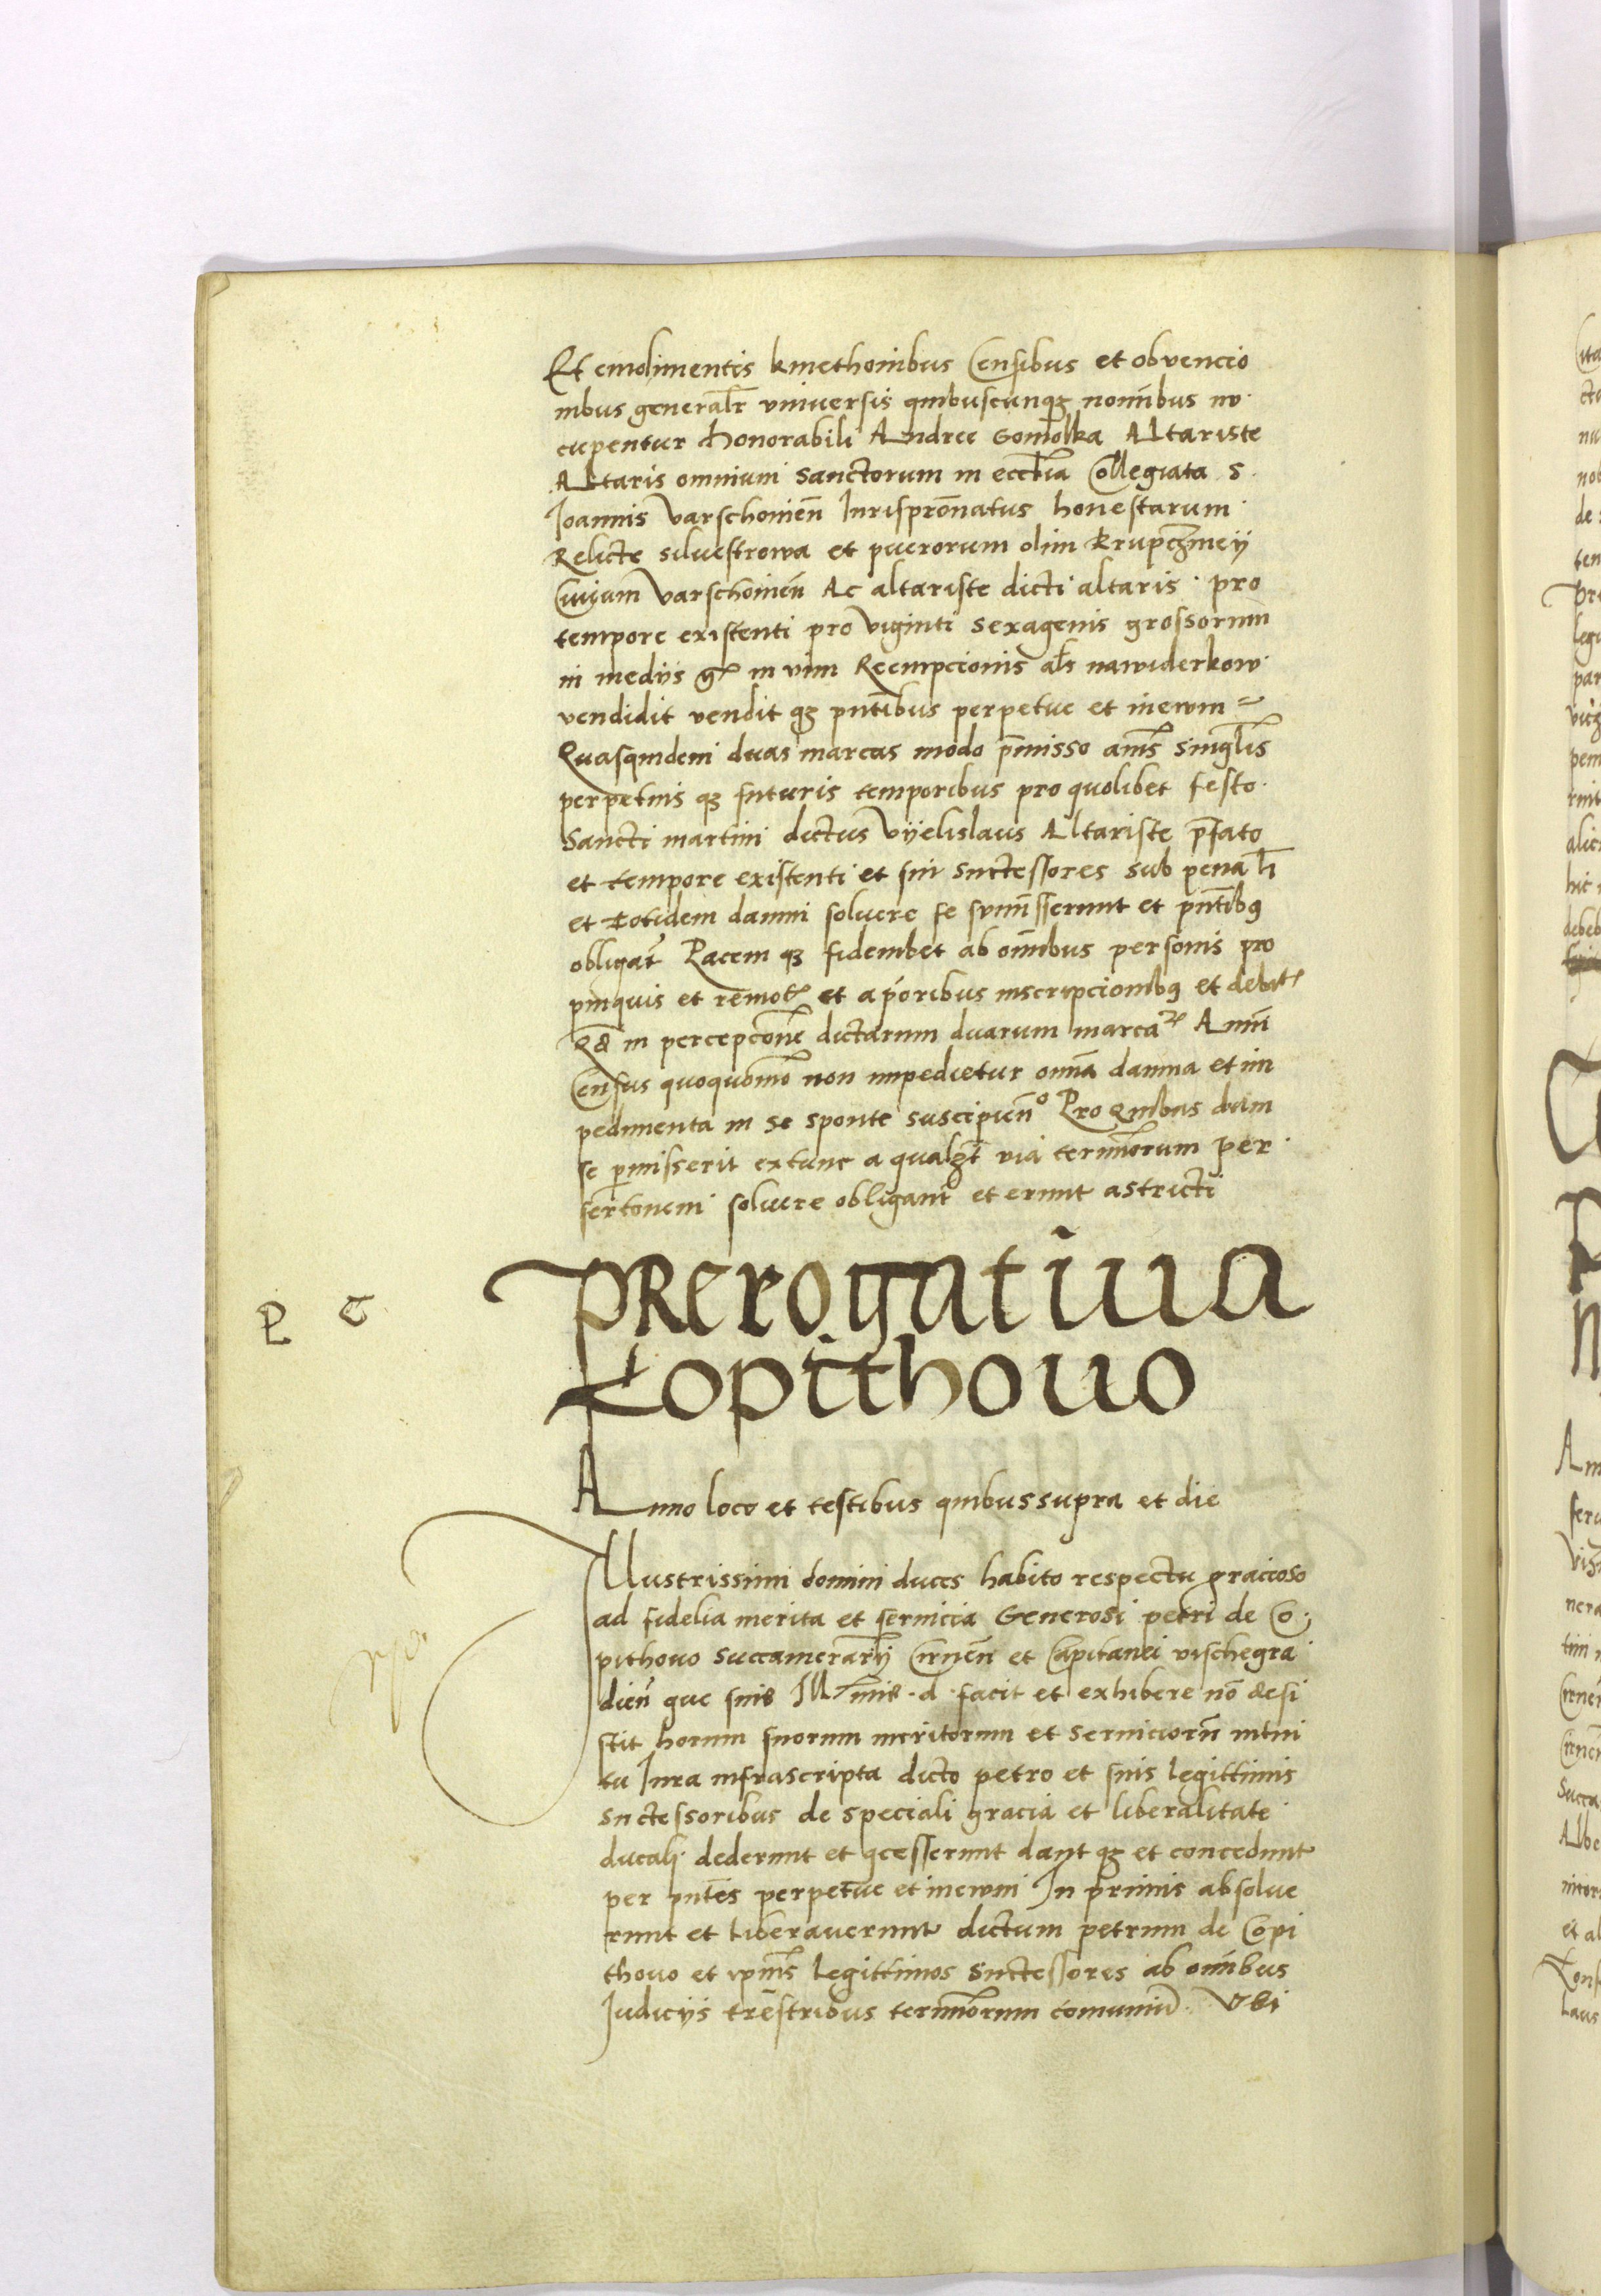 Et emolimentis kmethonibus Censibus et obvencio
nibus generalr vniuersis quibuscunqz nominibus nu
cupentur honorabili Andree Gomolka Altariste
Altaris omnium Sanctorum in eccłia Collegiata S
Joannis Varschouien Jurisprõnatus honestarum
Relicte siluestrowa et puerorum olim
Ciuium Varschouien Ac altariste dicti altaris pro
tempore existenti pro viginti sexagenis grossorum
in medijs gr in vim Reempcionis als nawiderkow
vendidit vendit qz pntibus perpetue et inewm
Quasquidem duas marcas modo pmisso anis singlis
perpetuis qz futuris temporibus pro quolibet festo
Sancti martini dictus Vyelislaus Altariste pfato
et tempore existenti et sui Suctessores sub pena
et totidem damni soluere se summisserunt et pntibq
obligat Pacem qz fidembet ab omibus personis pro
pinquis et remotr et aporibus inscripcionibq et debitr
Qd in percepcone dictarum duarum marcar Anni
Census quoquomo non impedietur omia damna et im
pedimenta in se sponte suscipien Pro Quibus dum
se pmisserit extunc a qualzt via terminorum per
sertonem soluere obligant et erunt astricti
P C
Prerogatiua
Copithouo
Anno loco et testibus quibussupra et die
Illustrissimi domini duces habito respectu gracioso
ad fidelia merita et seruicia Generosi petri de Co
pithouo Succamerarij Cirnen et Capitanei vischegra
dien que suis Ill mis d facit et exhibere no desi
stit horum suorum meritorum et seruiciorum intui
tu Jura infrascripta dicto petro et suis legittimis
Suctessoribus de speciali gracia et liberalitate
ducali dederunt et qcesserunt dant qz et concedunt
per pntes perpetue et inewm Jn primis absolue
runt et liberauerunt dictum petrum de Copi
thouo et ipius legittimos Suctessores ab omibus
Judicijs trestribus terminorum comuniu Vbi